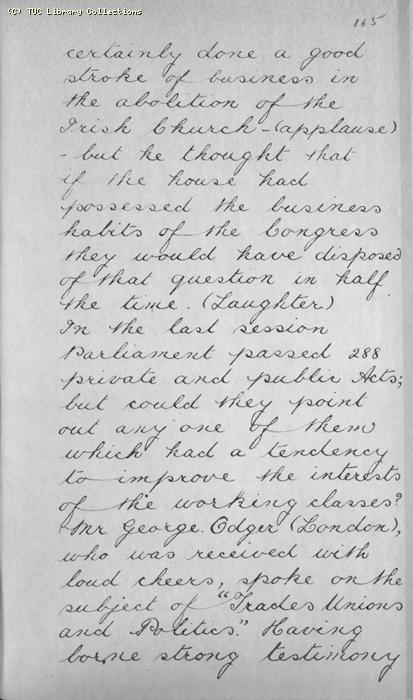 (C) TUC Library Collections
165
certainly done a good
stroke of business in
the abolition of the
Irish Church - (applause)
- but he thought that
if the house had
possessed the business
habits of the Congress
they would have disposed
of that question in half
the time. (Laughter)
In the last session
Parliament passed 288
private and public Acts;
but could they point
out any one of them
which had a tendency
to improve the interests
of the working classes?
Mr. George Odger (London),
who was received with
loud cheers, spoke on the
subject of "Trades Unions
and Politics." Having
borne strong testimony